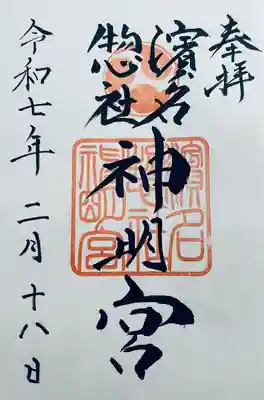 奉拝
濱名
惣社
神明宮
令和七年 二月 十八日
濱名
惣社
神明宮